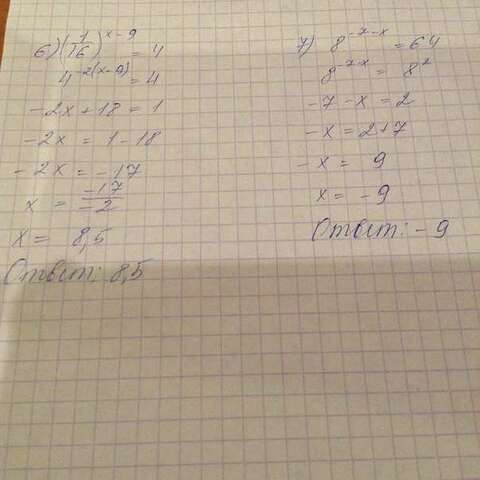 6) (1/16)^(x-9) = 4
4^(-2(x-9)) = 4
-2x+18 = 1
-2x = 1-18
-2x = -17
x = -17/-2
x = 8,5
Ответ: 8,5
7) 8^(-7-x) = 64
8^(-7-x) = 8^2
-7-x = 2
-x = 2+7
-x = 9
x = -9
Ответ: -9